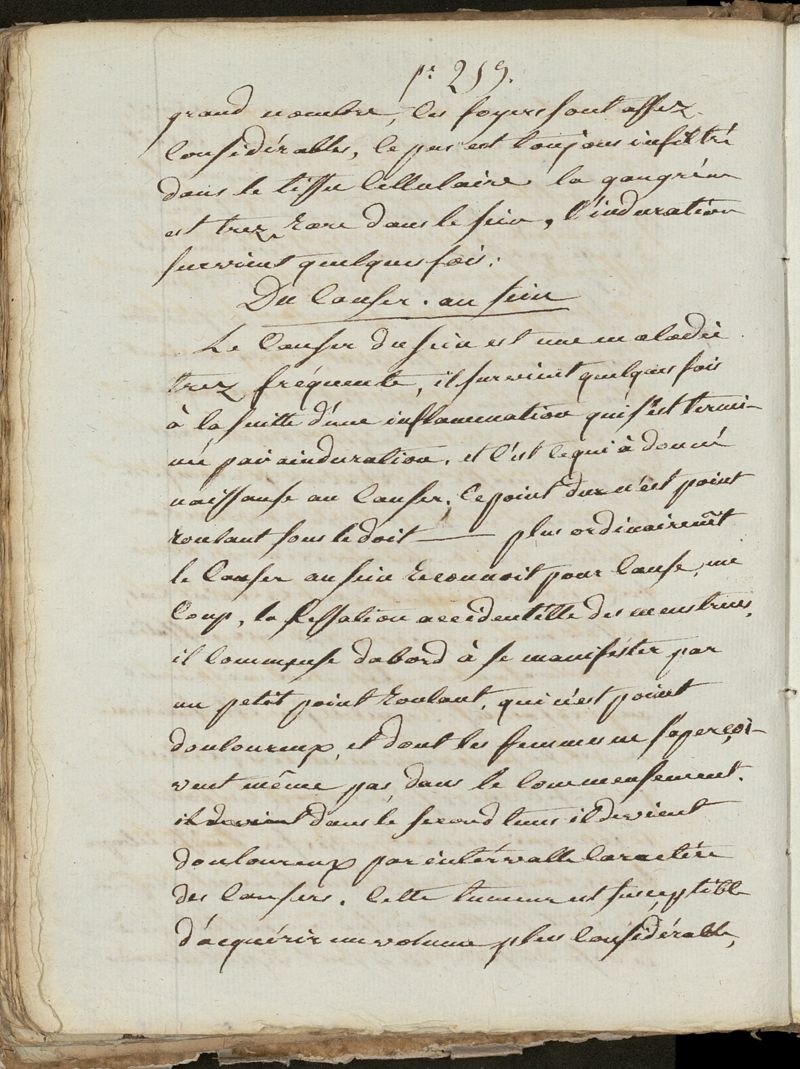 pe 259.
grand nombre, les foyers sont assez
Considérables, le pus est toujours infiltré
dans le tissu Cellulaire la gangréne
est trez Rare dans le sein, l'induration
survient quelques fois.
Du Canser. au sein
Le Canser du sein est une maladie
trez fréquente, il survient quelques fois
à la suitte d'une inflammation qui s'est termi-
née par induration. et c'est ce qui à donné
naissanse au Canser. Ce point dur n'est point
roulant sous le doit — plus ordinairemt
le Canser au sein reconnoit pour Cause, un
Coup, la Cessation accidentelle des menstrues,
il Commense dabord à se manifester par
un petit point Roulant, qui n'est point
douloureux, et dont les femmes ne s'aperçoi-
vent même pas, dans le Commensement.
il devient dans le second tems il devient
douloureux par intérvalle Caractère
des Cansers. Cette tumeur est susceptible
d'acquérir un volume plus Considérable,